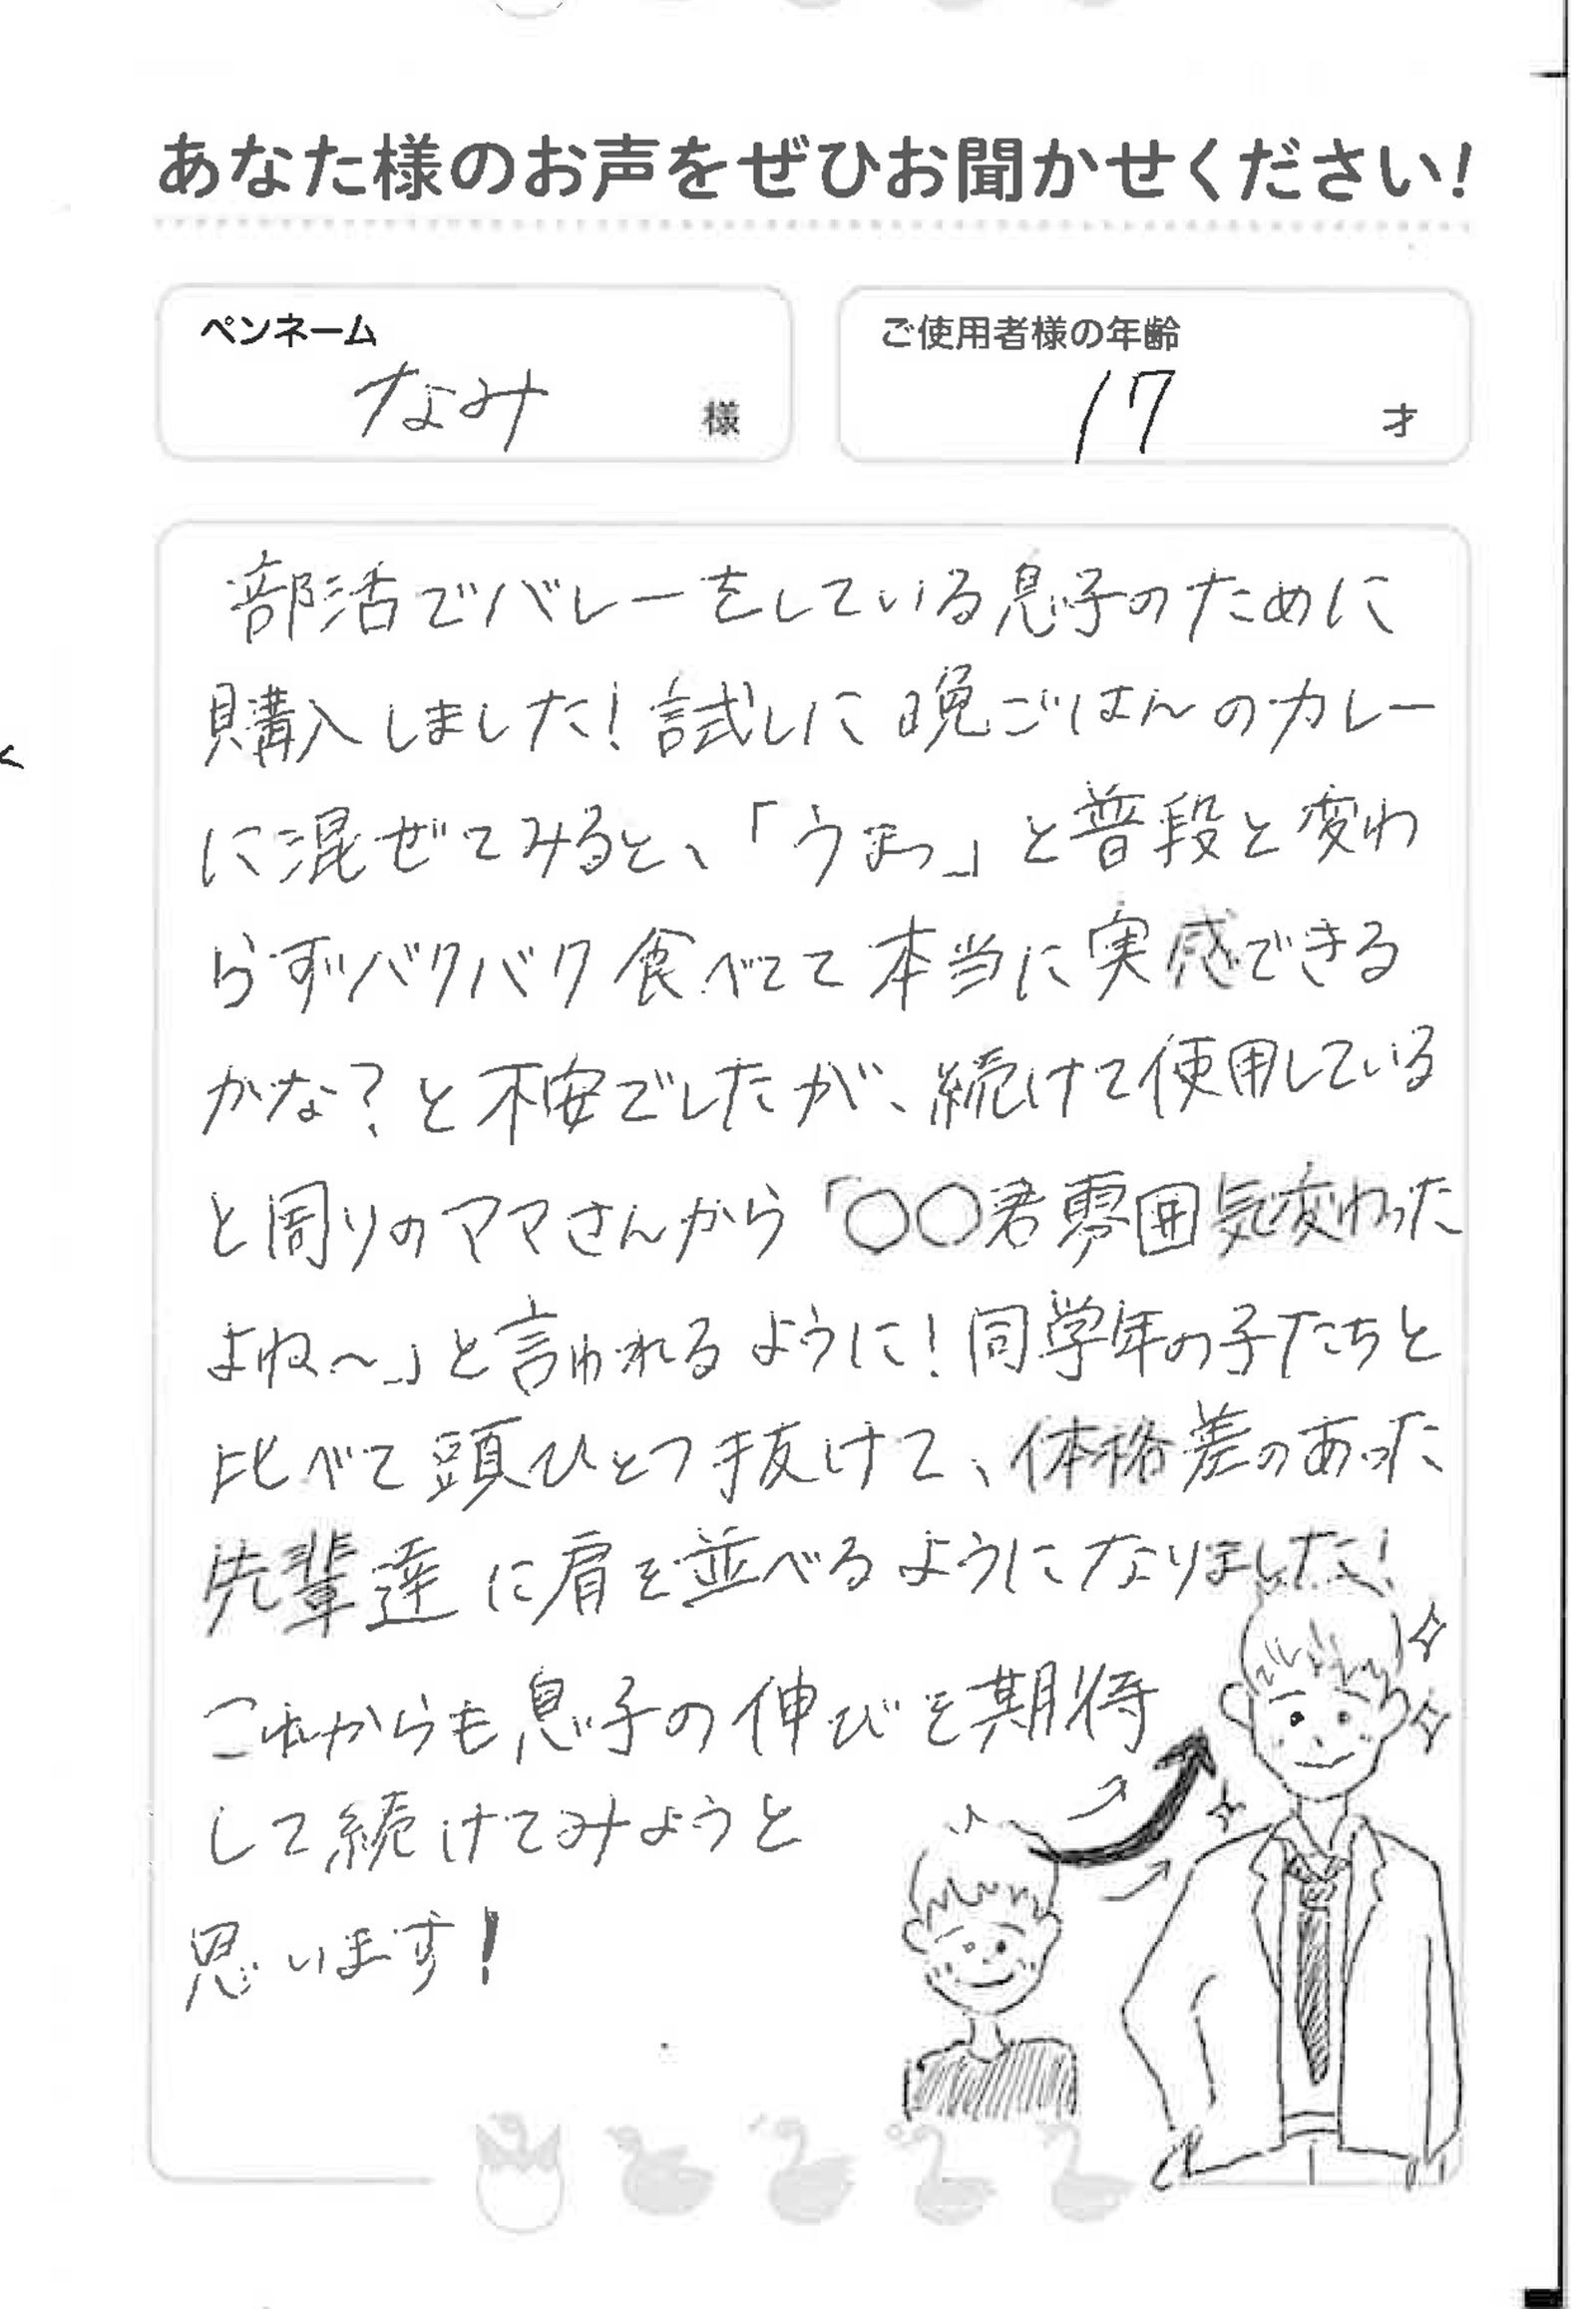 あなた様のお声をぜひお聞かせください!
ペンネーム
なみ 様
ご使用者様の年齢
17 才
部活でバレーをしている息子のために
購入しました!試しに晩ごはんのカレー
に混ぜてみると、「うまっ」と普段と変わ
らずバクバク食べてて本当に実感できる
かな?と不安でしたが、続けて使用している
と周りのママさんから「〇〇君雰囲気変わった
よね〜」と言われるように!同学年の子たちと
比べて頭ひとつ抜けて、体格差のあった
先輩達に肩を並べるようになりました!
これからも息子の伸びを期待
して続けてみようと
思います!